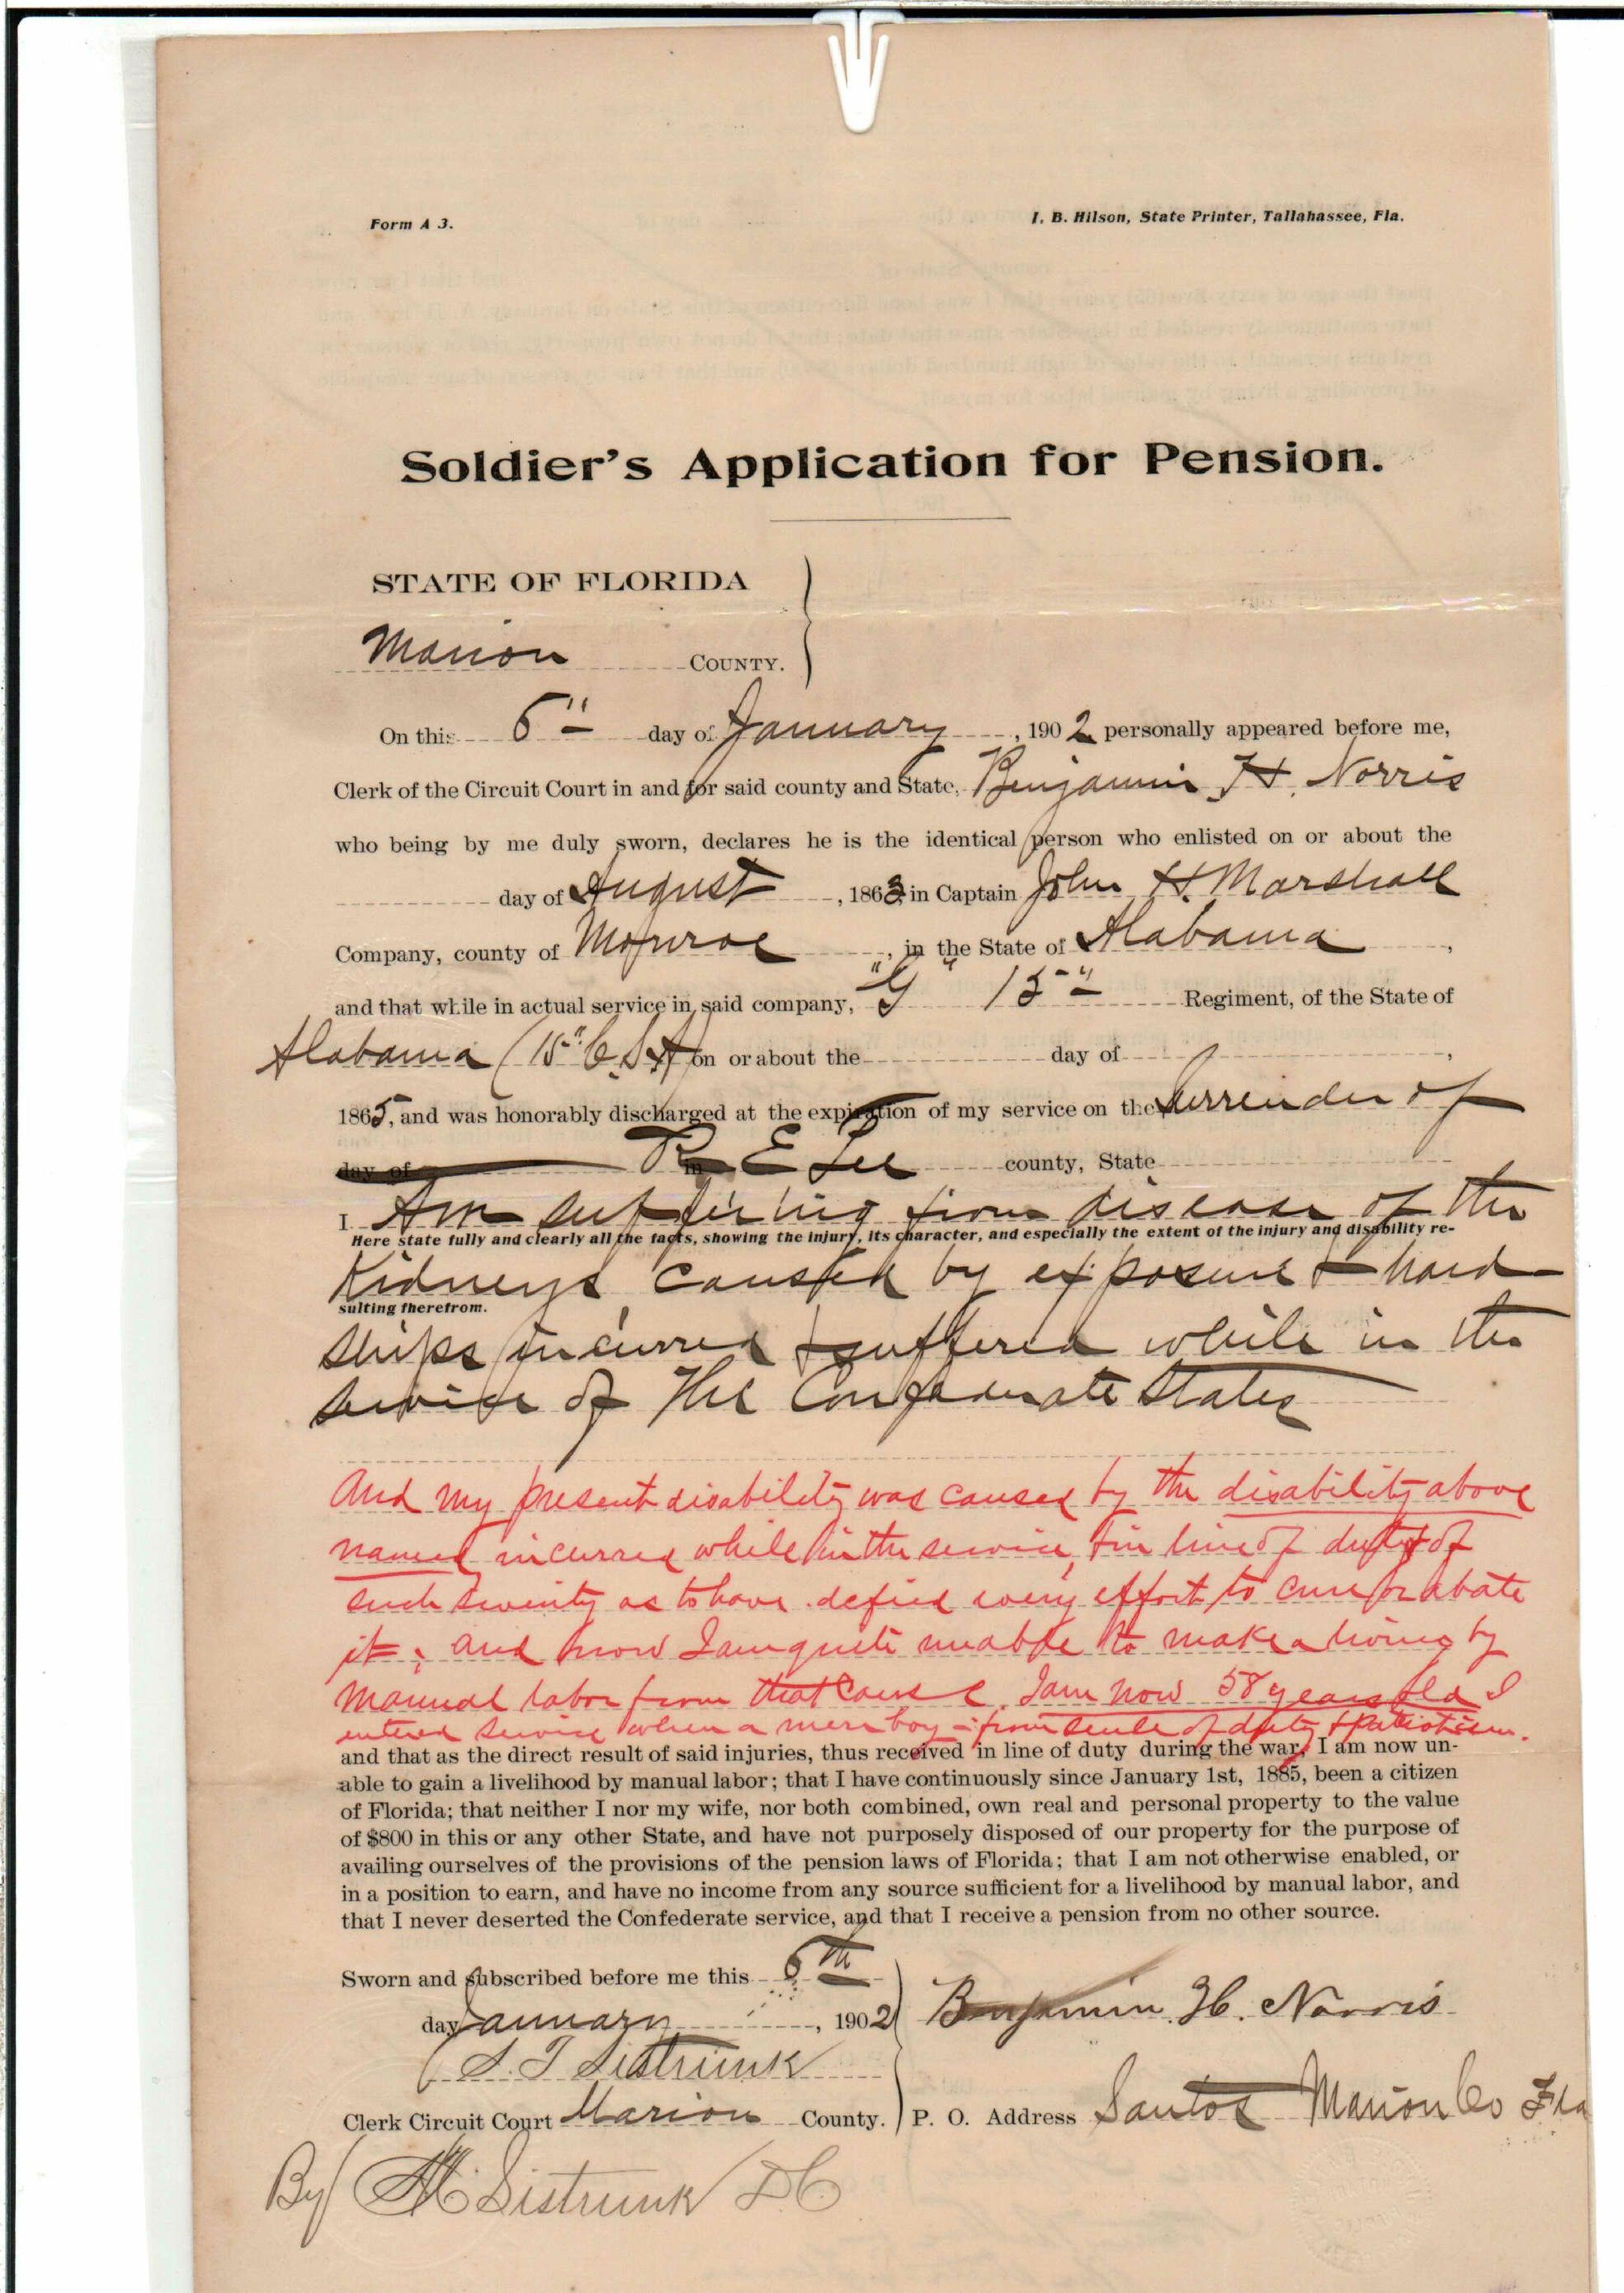 Form A 3.
I. B. Hilson, State Printer, Tallahassee, Fla.
Soldier's Application for Pension.
STATE OF FLORIDA
Marion COUNTY.
On this 6" day of January, 1902 personally appeared before me,
Clerk of the Circuit Court in and for said county and State, Benjamin H. Norris
who being by me duly sworn, declares he is the identical person who enlisted on or about the
day of August, 1863, in Captain John H. Marshall
Company, county of Monroe, in the State of Alabama,
and that while in actual service in said company, "G" 15" Regiment, of the State of
Alabama (15" C.S.A) on or about the day of ,
1865, and was honorably discharged at the expiration of my service on the Surrender of
day of R E Lee in county, State
I Am suffering from disease of the
Here state fully and clearly all the facts, showing the injury, its character, and especially the extent of the injury and disability re-
Kidneys, caused by exposure & hard
sulting therefrom.
ships incurred & suffered while in the
service of The Confederate States
And my present disability was caused by the disability above
named incurred while in the service, & in line of duty & of
such severity as to have defied every effort to cure or abate
it; and now I am quite unable to make a living by
manual labor from that cause. I am now 58 years old I
entered service when a mere boy - from sense of duty & patriotism.
and that as the direct result of said injuries, thus received in line of duty during the war, I am now un-
able to gain a livelihood by manual labor; that I have continuously since January 1st, 1885, been a citizen
of Florida; that neither I nor my wife, nor both combined, own real and personal property to the value
of $800 in this or any other State, and have not purposely disposed of our property for the purpose of
availing ourselves of the provisions of the pension laws of Florida; that I am not otherwise enabled, or
in a position to earn, and have no income from any source sufficient for a livelihood by manual labor, and
that I never deserted the Confederate service, and that I receive a pension from no other source.
Sworn and subscribed before me this 6th
day January, 1902
Benjamin H. Norris
S. T. Sistrunk
Clerk Circuit Court Marion County.
P. O. Address Santos Marion Co Fla
By Sistrunk DC